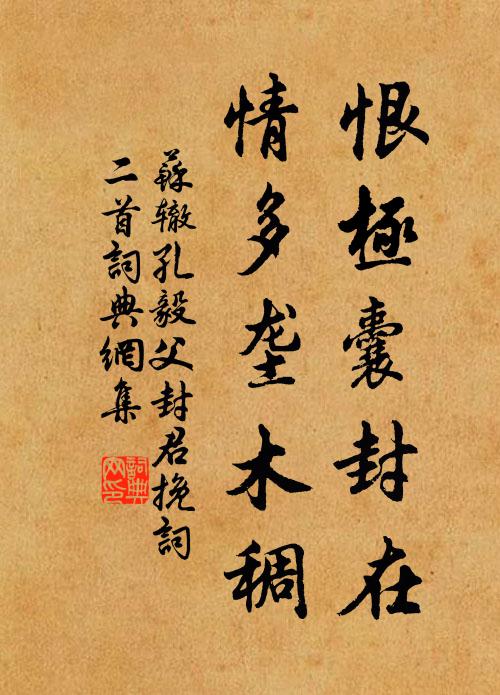 恨極囊封在
情多垄木稠
蘇辙孔毅父封君挽詞
二首詞典網集
詞典
网印